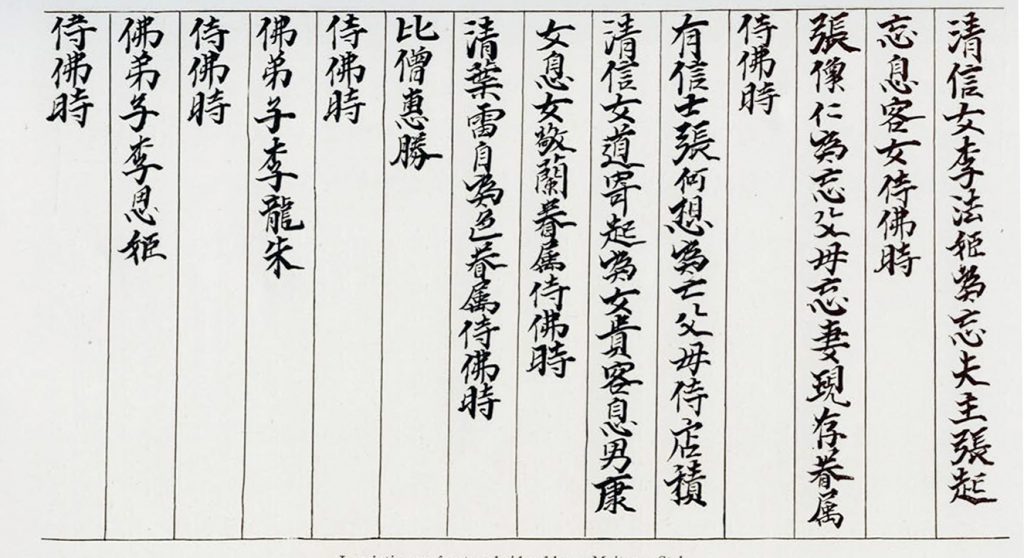 清信女李法姬為忘夫主張起
忘息客女侍佛時
張儁仁為忘父母忘妻現存眷属
侍佛時
有信士張何想為亡父母侍店積
清信女道寄起為女貴容息男康
女息女敬蘭眷属侍佛時
清葉雷自為邑眷属侍佛時
比僧惠勝
侍佛時
佛弟子李龍朱
侍佛時
佛弟子李恩姬
侍佛時